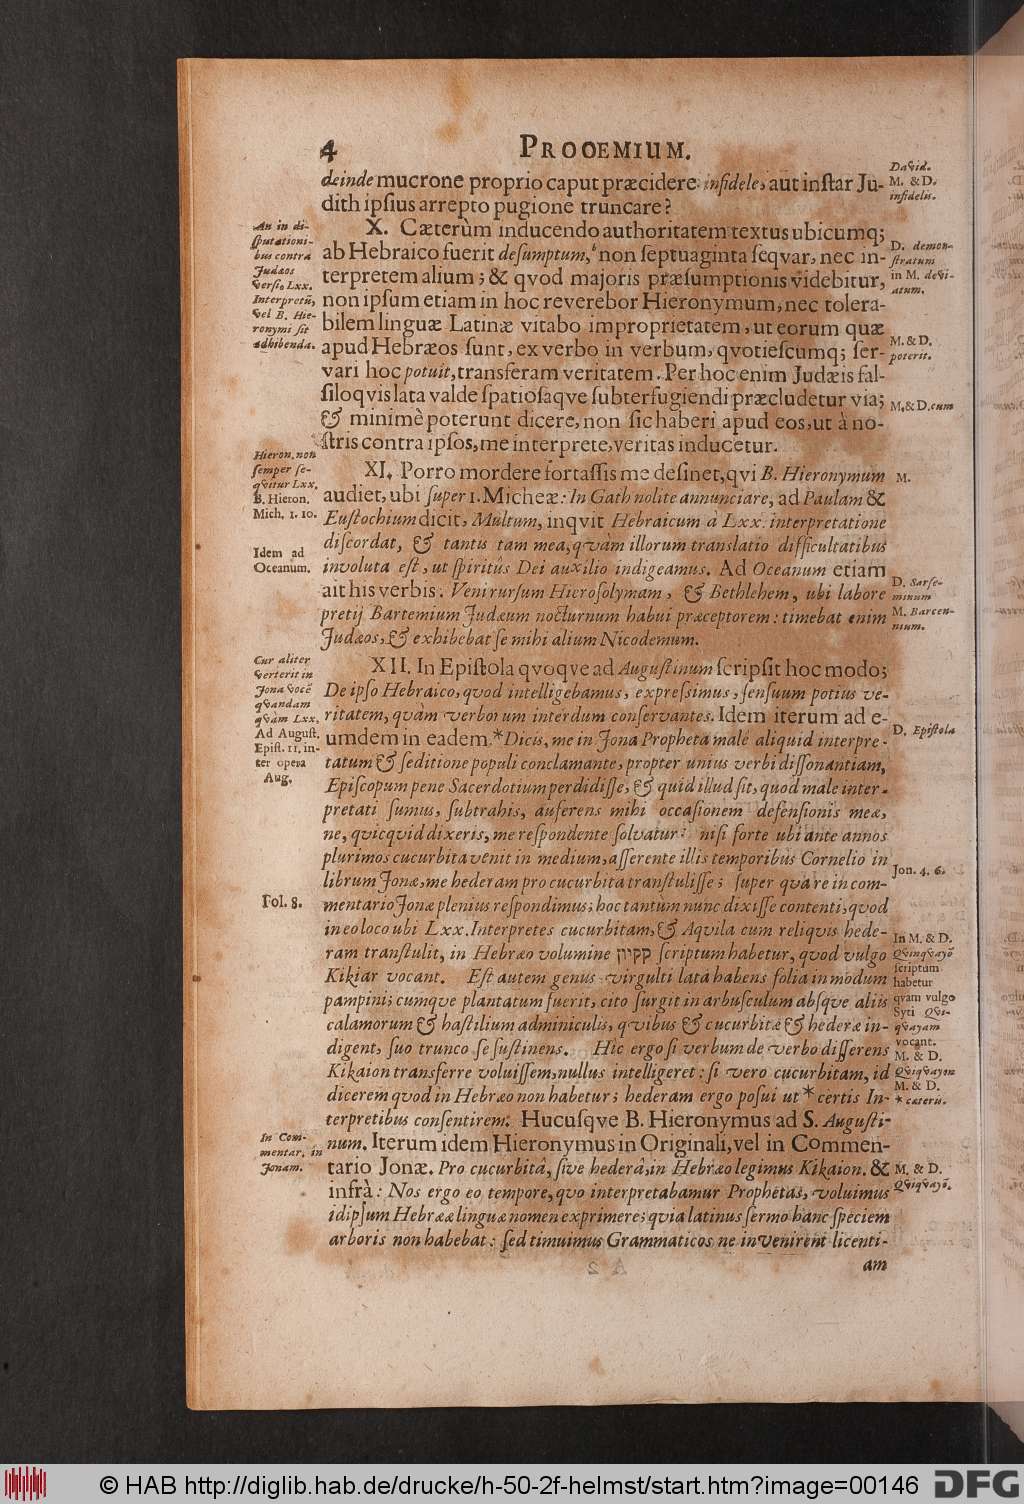 4 PROOEMIUM.
deinde mucrone proprio caput præcidere infidele, aut instar Ju-
dith ipsius arrepto pugione truncare?
X. Cæterùm inducendo authoritatem textus ubicumq;
ab Hebraico fuerit desumptum, non septuaginta seqvar, nec in-
terpretem alium; & qvod majoris præsumptionis videbitur,
non ipsum etiam in hoc reverebor Hieronymum, nec tolera-
bilem linguæ Latinæ vitabo improprietatem, ut eorum quæ
apud Hebræos sunt, ex verbo in verbum, qvotiescumq; ser-
vari hoc potuit, transferam veritatem. Per hoc enim Judæis fal-
siloqvis lata valde spatiosaqve subterfugiendi præcludetur via;
& minimè poterunt dicere, non sic haberi apud eos, ut à no-
stris contra ipsos, me interprete, veritas inducetur.
XI. Porro mordere fortassis me desinet, qvi B. Hieronymum
audiet, ubi super 1. Micheæ: In Gath nolite annunciare, ad Paulam &
Eustochium dicit, Multum, inqvit Hebraicum à Lxx. interpretatione
discordat, & tantis tam mea, qvàm illorum translatio difficultatibus
involuta est, ut spiritûs Dei auxilio indigeamus. Ad Oceanum etiam
ait his verbis: Veni rursum Hierosolymam, & Bethlehem, ubi labore
pretij Bartemium Judæum nocturnum habui præceptorem: timebat enim
Judæos, & exhibebat se mihi alium Nicodemum.
XII. In Epistola qvoqve ad Augustinum scripsit hoc modo;
De ipso Hebraico, quod intelligebamus, expressimus, sensuum potius ve-
ritatem, quàm verborum interdum conservantes. Idem iterum ad e-
umdem in eadem.* Dicis, me in Jona Propheta malè aliquid interpre-
tatum & seditione populi conclamante, propter unius verbi dissonantiam,
Episcopum pene Sacerdotium perdidisse, & quid illud sit, quod male inter-
pretati sumus, subtrahis, auferens mihi occasionem defensionis meæ,
ne, quicquid dixeris, me respondente solvatur: nisi forte ubi ante annos
plurimos cucurbita venit in medium, asserente illis temporibus Cornelio in
librum Jonæ, me hederam pro cucurbita transtulisse; super qua re in com-
mentario Jonæ plenius respondimus; hoc tantum nunc dixisse contenti, quod
in eo loco ubi Lxx. Interpretes cucurbitam, & Aquila cum reliqvis hede-
ram transtulit, in Hebræo volumine קקיון scriptum habetur, quod vulgo
Kikiar vocant. Est autem genus virgulti lata habens folia in modum
pampini; cumque plantatum fuerit, cito surgit in arbusculum absque aliis
calamorum & hastilium adminiculis, qvibus & cucurbitæ & hederæ in-
digent, suo trunco se sustinens. Hic ergo si verbum de verbo differens
Kikaion transferre voluissem, nullus intelligeret: si vero cucurbitam, id
dicerem quod in Hebræo non habetur; hederam ergo posui ut * certis In-
terpretibus consentirem. Hucusqve B. Hieronymus ad S. Augusti-
num. Iterum idem Hieronymus in Originali, vel in Commen-
tario Jonæ. Pro cucurbitâ, sive hederâ, in Hebræo legimus Kikaion. &
infrà: Nos ergo eo tempore, quo interpretabamur Prophetas, voluimus
idipsum Hebrææ linguæ nomen exprimere; qvia latinus sermo hanc speciem
arboris non habebat: sed timuimus Grammaticos ne invenirent licenti-
am
An in di-
sputationi-
bus contra
Judæos
versio Lxx.
Interpretũ,
vel B. Hie-
ronymi sit
adhibenda.
Hieron. non
semper se-
quitur Lxx.
B. Hieron.
Mich. 1. 10.
Idem ad
Oceanum.
Cur aliter
verterit in
Jona vocẽ
qvandam
qvàm Lxx.
Ad August.
Epist. 11. in-
ter opera
Aug.
Fol. 8.
In Com-
mentar. in
Jonam.
David.
M. & D.
infidelis.
D. demon-
stratum
in M. devi-
atum.
M. & D.
poterit.
M. & D. cum
M.
D. Sarse-
minum
M. Barcen-
nium.
D. Epistola
Jon. 4. 6.
In M. & D.
Qvinqvayõ
scriptum
habetur
qvam vulgo
Syri Qvi-
qvayam
vocant.
M. & D.
Qviqvayon
M. & D.
* cæteris.
M. & D.
Qviqvayõ.
© HAB http://diglib.hab.de/drucke/h-50-2f-helmst/start.htm?image=00146
DFG